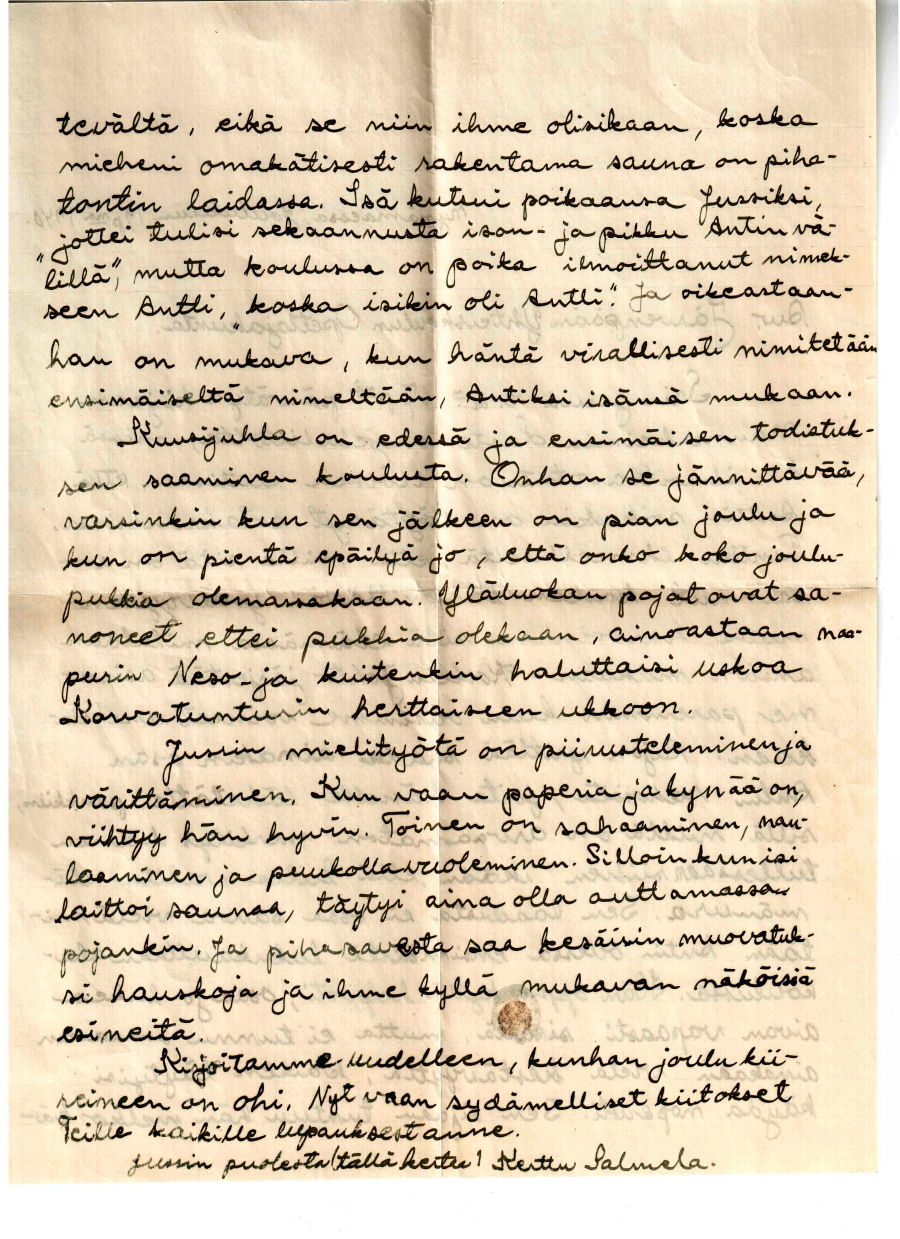 tevältä, eikä se niin ihme olisikaan, koska
mieheni omakätisesti rakentama sauna on piha-
tontin laidassa. Isä kutsui poikaansa Jussiksi,
jottei tulisi sekaannusta ison- ja pikku Antin vä-
lillä", mutta koulussa on poika ilmoittanut nimek-
seen Antti, "koska isikin oli Antti". Ja oikeastaan-
han on mukava, kun häntä virallisesti nimitetään
ensimäiseltä nimeltään, Antiksi isänsä mukaan.
Kuusijuhla on edessä ja ensimäisen todistuk-
sen saaminen koulusta. Onhan se jännittävää,
varsinkin kun sen jälkeen on pian joulu ja
kun on pientä epäilyä jo, että onko koko joulu-
pukkia olemassakaan. Yläluokan pojat ovat sa-
noneet ettei pukkia olekaan, ainoastaan naa-
purin Veso - ja kuitenkin haluttaisi uskoa
Korvatunturin herttaiseen ukkoon.
Jussin mielityötä on piirusteleminen ja
värittäminen. Kun vaan paperia ja kynää on,
viihtyy hän hyvin. Toinen on sahaaminen, nau-
laaminen ja puukolla vuoleminen. Silloin kun isi
laittoi saunaa, täytyi aina olla auttamassa
pojankin. Ja pihasavesta saa kesäisin muovatuk-
si hauskoja ja ihme kyllä mukavan näköisiä
esineitä.
Kirjoitamme uudelleen, kunhan joulu kii-
reineen on ohi. Nyt vaan sydämelliset kiitokset
Teille kaikille lupauksestanne.
Jussin puolesta (tällä kertaa) Kerttu Salmela.